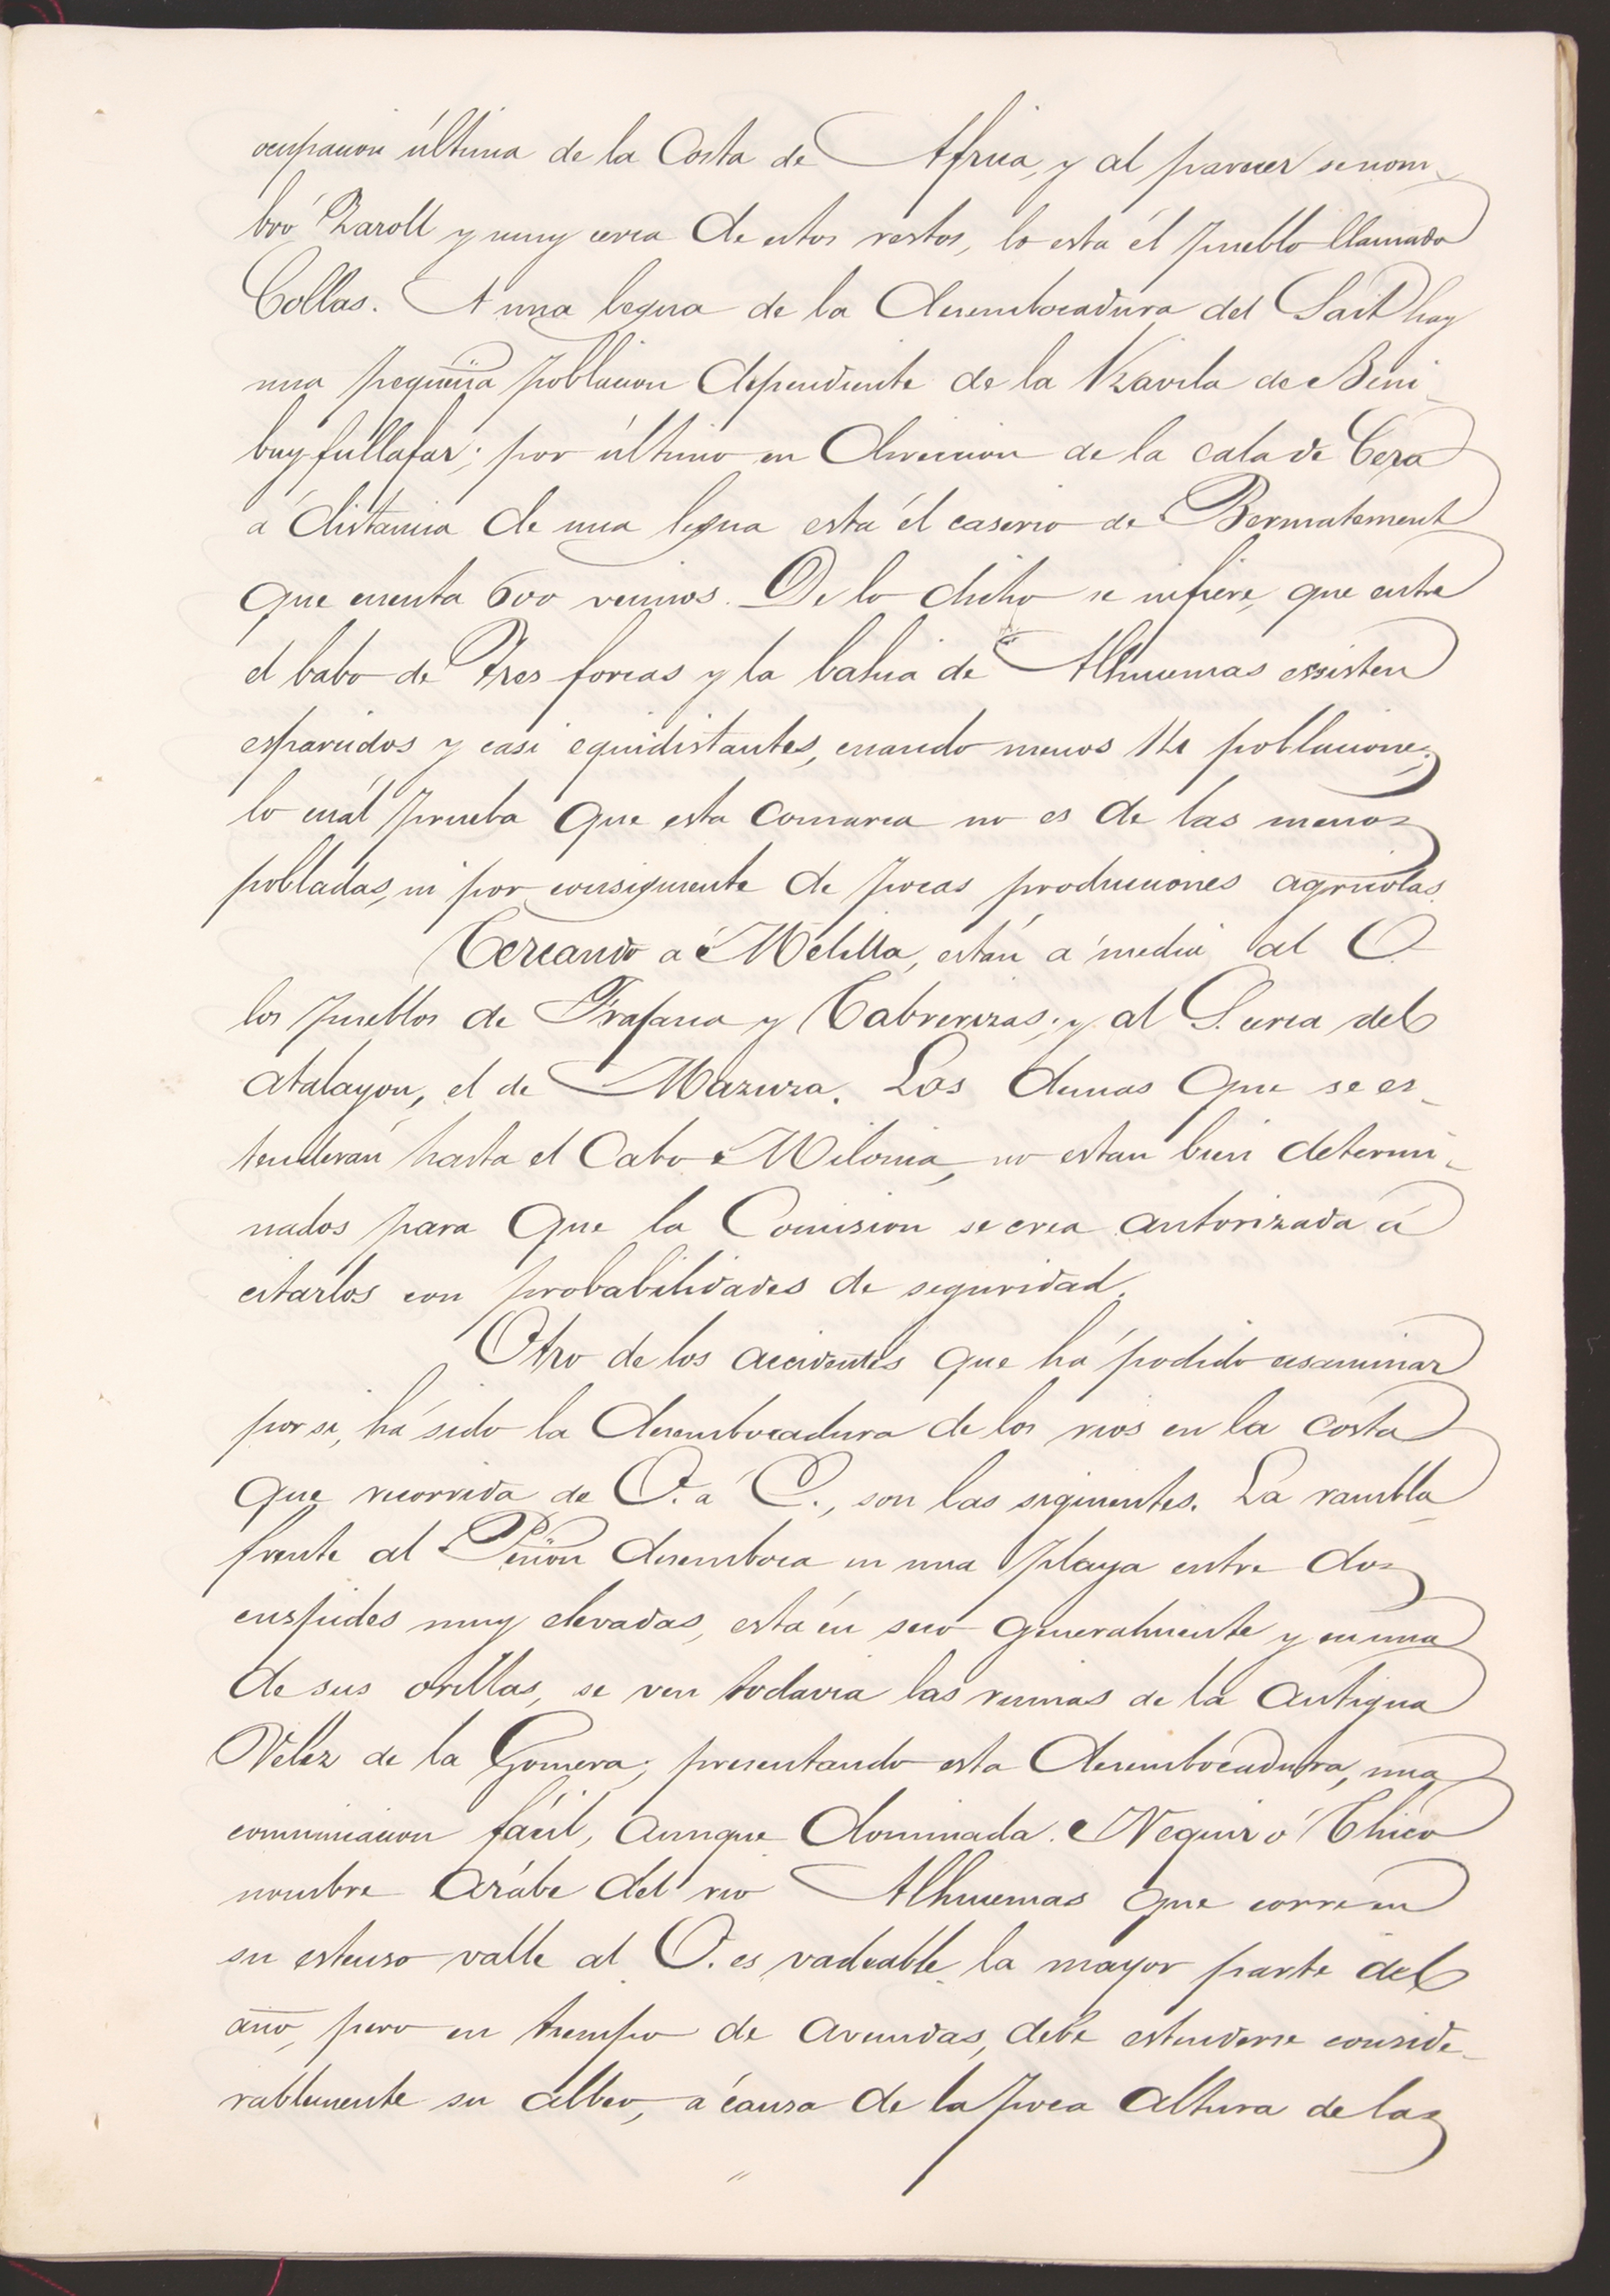 ocupacion última de la Costa de Africa, y al parecer se nom-
bró Zaroll y muy cerca de estos restos, lo esta él pueblo llamado
Collas. A una legua de la desembocadura del Sait hay
una pequeña poblacion dependiente de la Kavila de Beni
buyfullafar; por último en direccion de la cala de Ceza
á distancia de una legua está él caserio de Bermatement
que cuenta 600 vecinos. De lo dicho se infiere, que entre
el Cabo de Tres forcas y la bahia de Alhucemas essisten
esparcidos y casi equidistantes, cuando menos 14 poblaciones,
lo cuál prueba que esta comarca no es de las menos
pobladas, ni por consiguiente de pocas producciones agricolas.
Cercando á Melilla, están á media al O
los pueblos de Frafana y Cabrerizas; y al S. cerca del
atalayon, el de Mazuza. Los demas que se es-
tenderán hasta el Cabo Milonia, no estan bien determi-
nados para que la Comision se crea autorizada á
citarlos con probabilidades de seguridad.
Otro de los accidentes que há podido ecsaminar
por si, há sido la desembocadura de los rios en la costa
que recorrida de O. á E., son las siguientes. La rambla
frente al Peñon desemboca en una playa entre dos
cuspides muy elevadas, está én seco generalmente y en una
de sus orillas, se ven todavia las ruinas de la antigua
Veléz de la Gomera; presentando esta desembocadura, una
comunicacion fácil, aunque dominada. Nequiz ó Chico
nombre arábe del rio Alhucemas que corre en
su estenso valle al O. es vadeable la mayor parte del
año, pero en tiempo de avenidas, debe estenderse conside-
rablemente su albeo, á causa de la poca altura de las